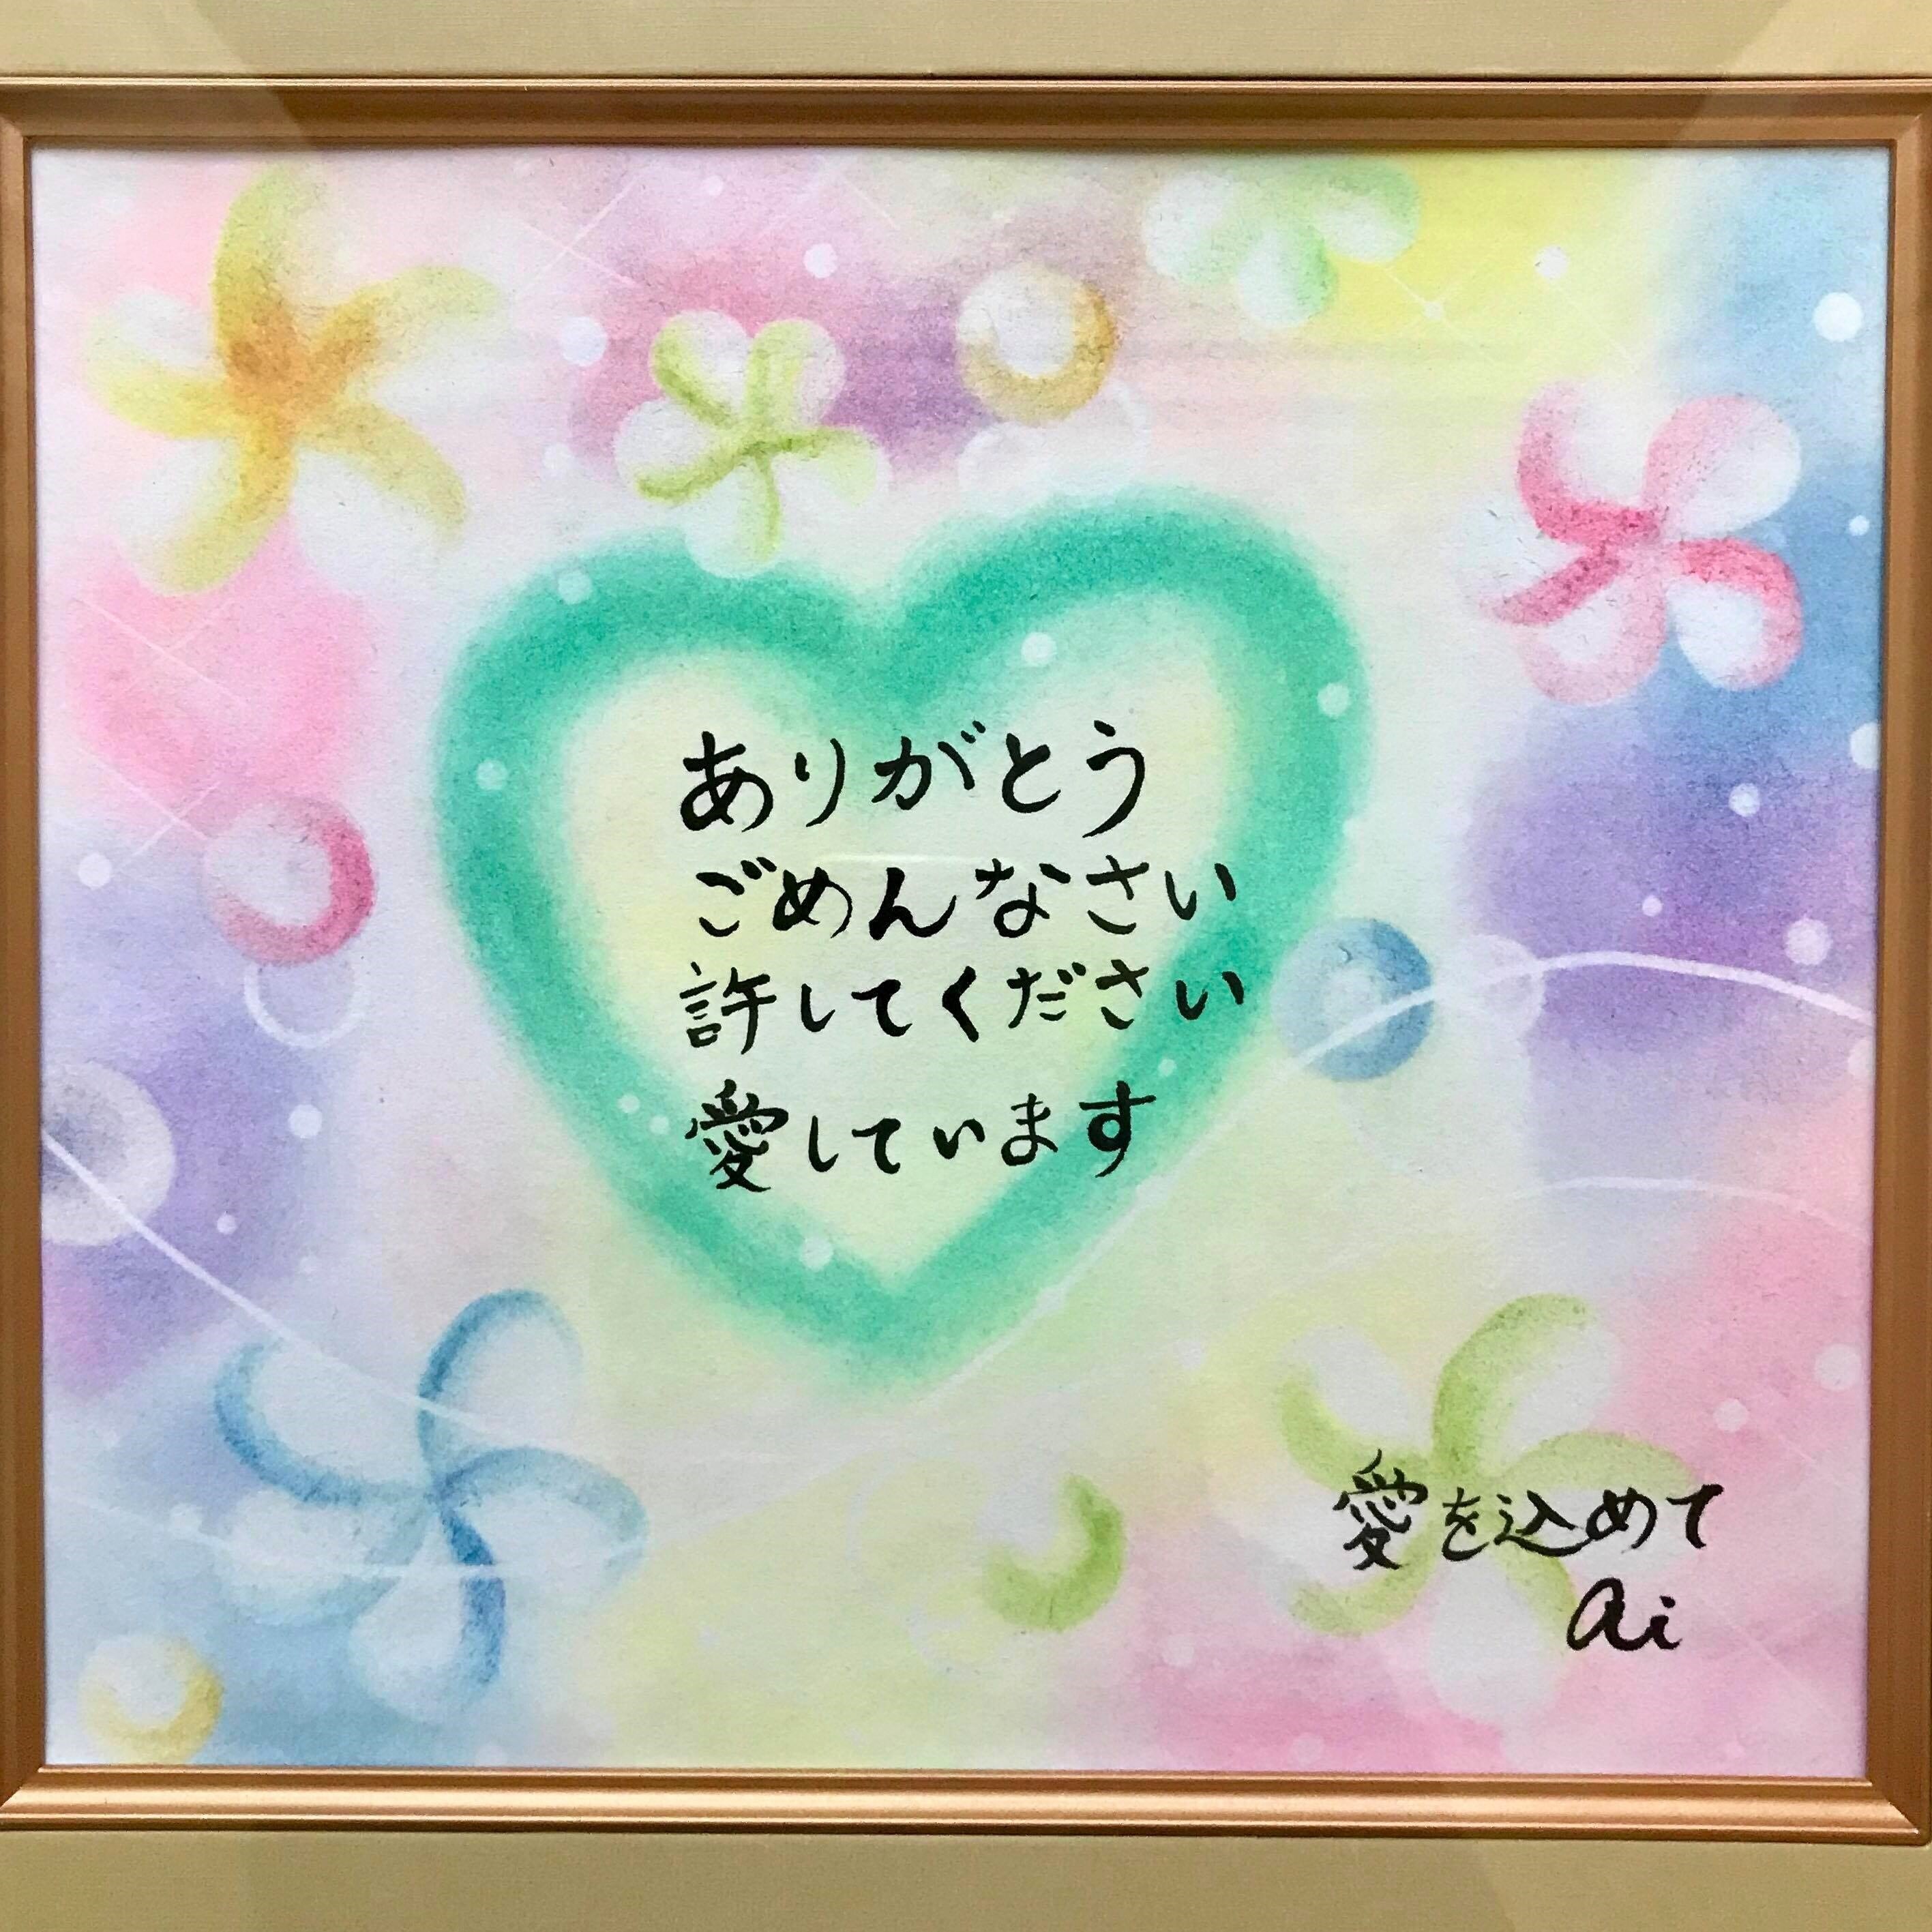 ありがとう
ごめんなさい
許してください
愛しています
愛を込めて
ai